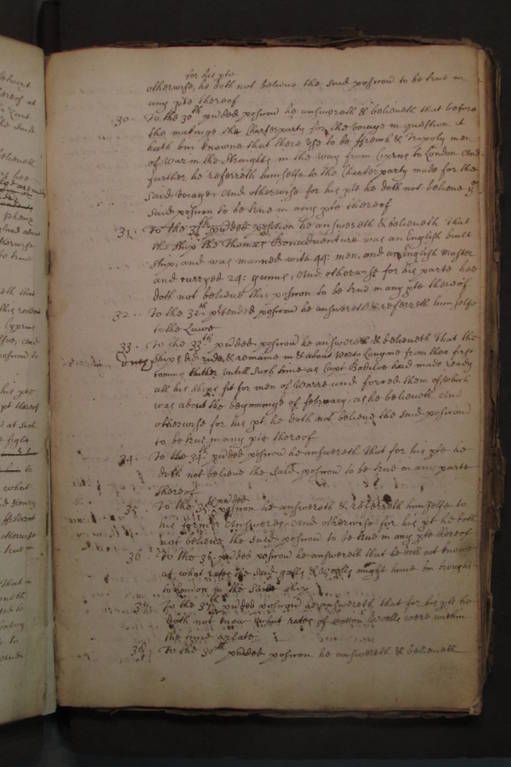 for his pte
otherwise, he doth not believe the said position to be true in
any pte thereof
30. To the 30th ptended position he answereth & believeth that before
the makinge the Charterparty for the voiage in question it
hath bin knowne that there use to be ffrench & Napoly men
of War in the Straights in the way from Cyprus to London And
further he referreth himselfe to the Charterparty made for the
said voyage, And otherwise for his pte he doth not believe ye
said position to be true in any pte thereof
31. To the 31th ptended position he answereth & believeth that
the ship the Thomas Bonadventure was an English built
ship, and was manned with 44: men, and an English Master
and carryed 24: gunns, And otherwise for his parte hee
doth not believe this position to be true in any pte thereof
32. To the 32th ptended position he answereth & referreth himselfe
to the Lawe
33. To the 33th ptended position he answereth & believeth that the
ships did ride & remaine in & about from their first
coming thither untill such time as Capt had made ready
all his ships fit for men of Warre and forced them
was about the beginninge of february, as he believeth And
otherwise for his pt he doth not believe the said position
to be true in any pte thereof
34. To the 34th ptended position he answereth that for his pte he
doth not believe the said position to be true in any parte
thereof
35. To the 35th ptended position he answereth & referreth himselfe to
his former Answeres, And otherwise for his pt he doth
not believe the said position to be true in any pte thereof
36 To the 36 ptended position he answereth that he doth not knowe
at what rates the said galls & might have bin brought
to London in the said ship
37. To the 37th ptended position he answereth that for his pte he
doth not know what rates of Cotton Woolls were within
the time
38. To the 38th ptended position he answereth & believeth